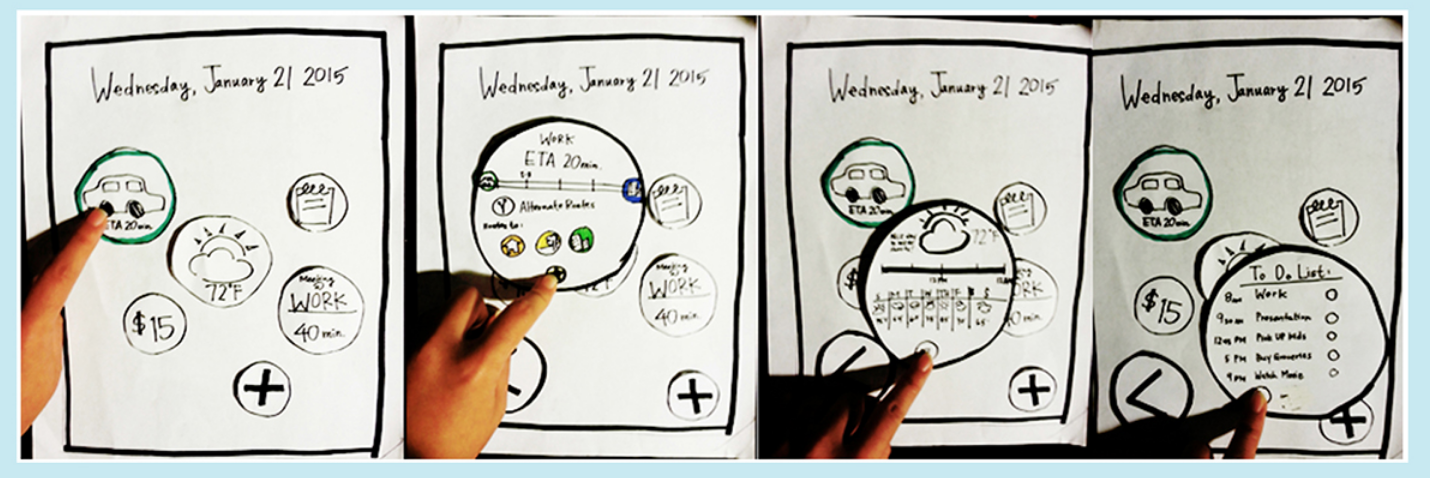 Wednesday, January 21 2015
ETA 20min
72°F
Meeting
WORK
40 min.
$15
Wednesday, January 21 2015
WORK
ETA 20min.
Alternate Routes
Routes to:
WORK
40 min.
Wednesday, January 21 2015
ETA 20min
72°F
Wednesday, January 21 2015
ETA 20min
$15
To Do List:
8am Work
9 Presentation
Pick UP kids
5 PM Buy Groceries
9 PM Watch Movie